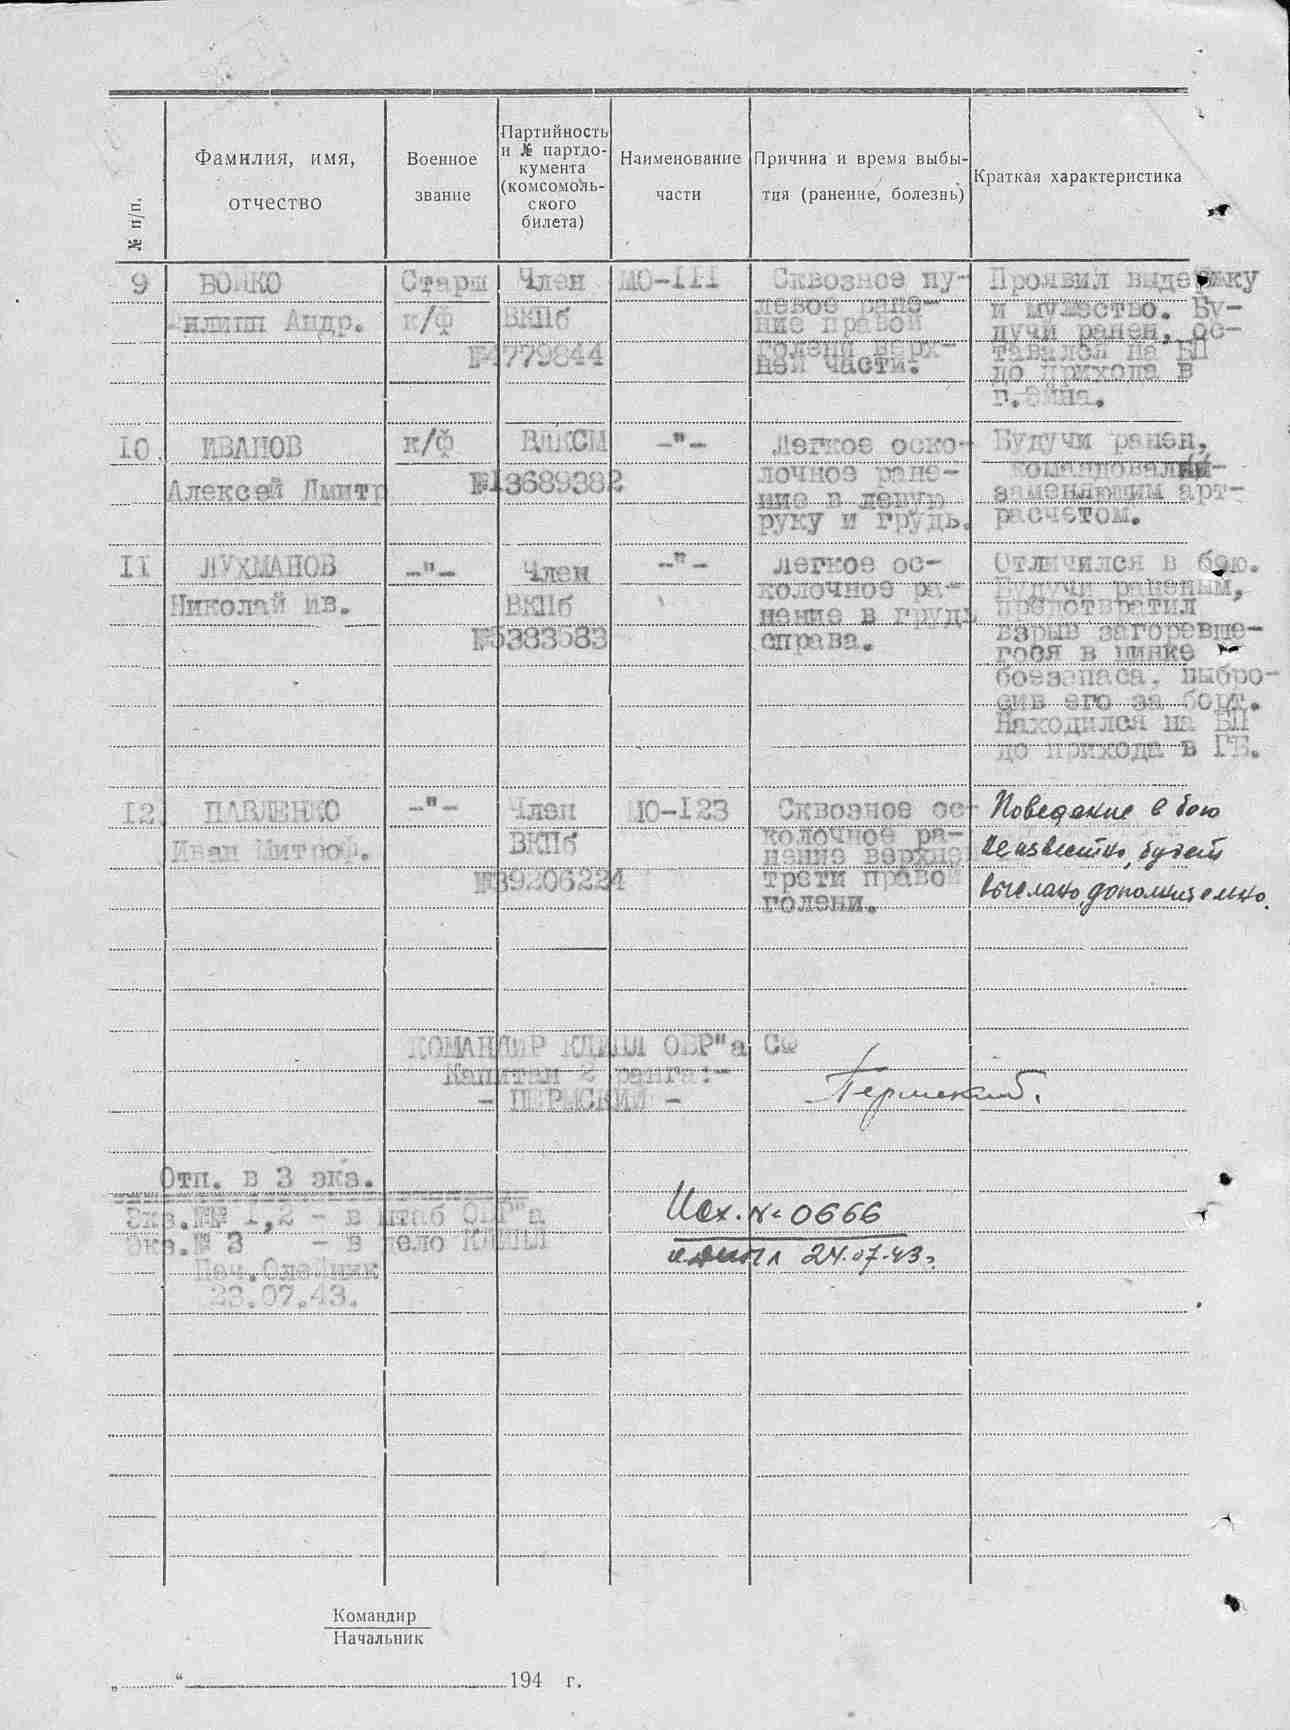 № п/п.
Фамилия, имя,
отчество
Военное
звание
Партийность
и № партдо-
кумента
(комсомоль-
ского
билета)
Наименование
части
Причина и время выбы-
тия (ранение, болезнь)
Краткая характеристика
9
БОЙКО
Филипп Андр.
Старш
к/ф
Член
ВКПб
№4779844
МО-III
Сквозное пу-
левое ране-
ние правой
голени верх-
ней части.
Проявил выдержку
и мужество. Бу-
дучи ранен, ос-
тавался на БП
до прихода в
10
ИВАНОВ
Алексей Дмитр
к/ф
ВЛКСМ
№13689382
-"-
Легкое оско-
лочное ране-
ние в левую
руку и грудь.
Будучи ранен,
командовал
заменяющим арт-
расчетом.
11
ЛУХМАНОВ
Николай Ив.
-"-
Член
ВКПб
№5383583
-"-
Легкое ос-
колочное ра-
нение в грудь
справа.
Отличился в бою.
Будучи раненым,
предотвратил
взрыв загоревше-
гося в цинке
боезапаса, выбро-
сив его за борт.
Находился на БП
до прихода в ГБ.
12
ПАВЛЕНКО
Иван Митроф.
-"-
Член
ВКПб
№39206224
МО-123
Сквозное ос-
колочное ра-
нение верхне
трети правой
голени.
Поведение в бою
неизвестно, будет
выслано дополнительно.
КОМАНДИР КДИПЛ ОВР"а СФ
Капитан 2 ранга:-
- ПЕРМСКИЙ -
Пермский.
Отп. в 3 экз.
Экз.№№ 1,2 - в штаб ОВР"а
Экз.№ 3 - в дело КДИПЛ
Печ.Олейник
23.07.43.
Исх. № 0666
24.07.43г.
Командир
Начальник
„ “ 194 г.